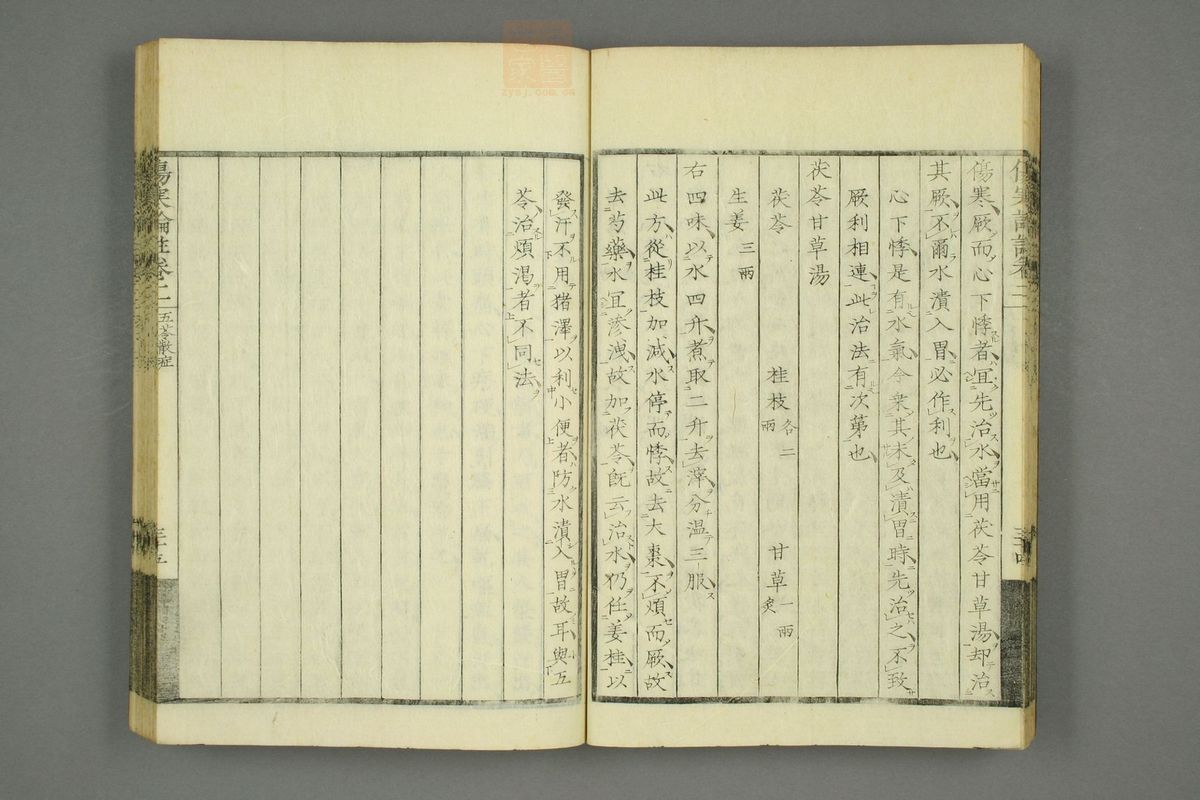 傷寒論註卷二
傷寒厥而心下悸者冝先治水當用茯苓甘草湯却治
其厥不爾水漬入胃必作利也
心下悸是有水氣今乗其未及漬胃時先治之不致
厥利相連此治法有次第也
茯苓甘草湯
茯苓 桂枝各二兩 甘草一兩炙
生姜三兩
右四味以水四升煮取二升去滓分温三服
此方從桂枝加減水停而悸故去大棗不煩而厥故
去芍藥水冝滲洩故加茯苓旣云治水仍任姜桂以
發汗不用猪澤以利小便者防水漬入胃故耳與五
苓治煩渇者不同法
傷寒論註卷二 五苓散症
zysj.com.cn